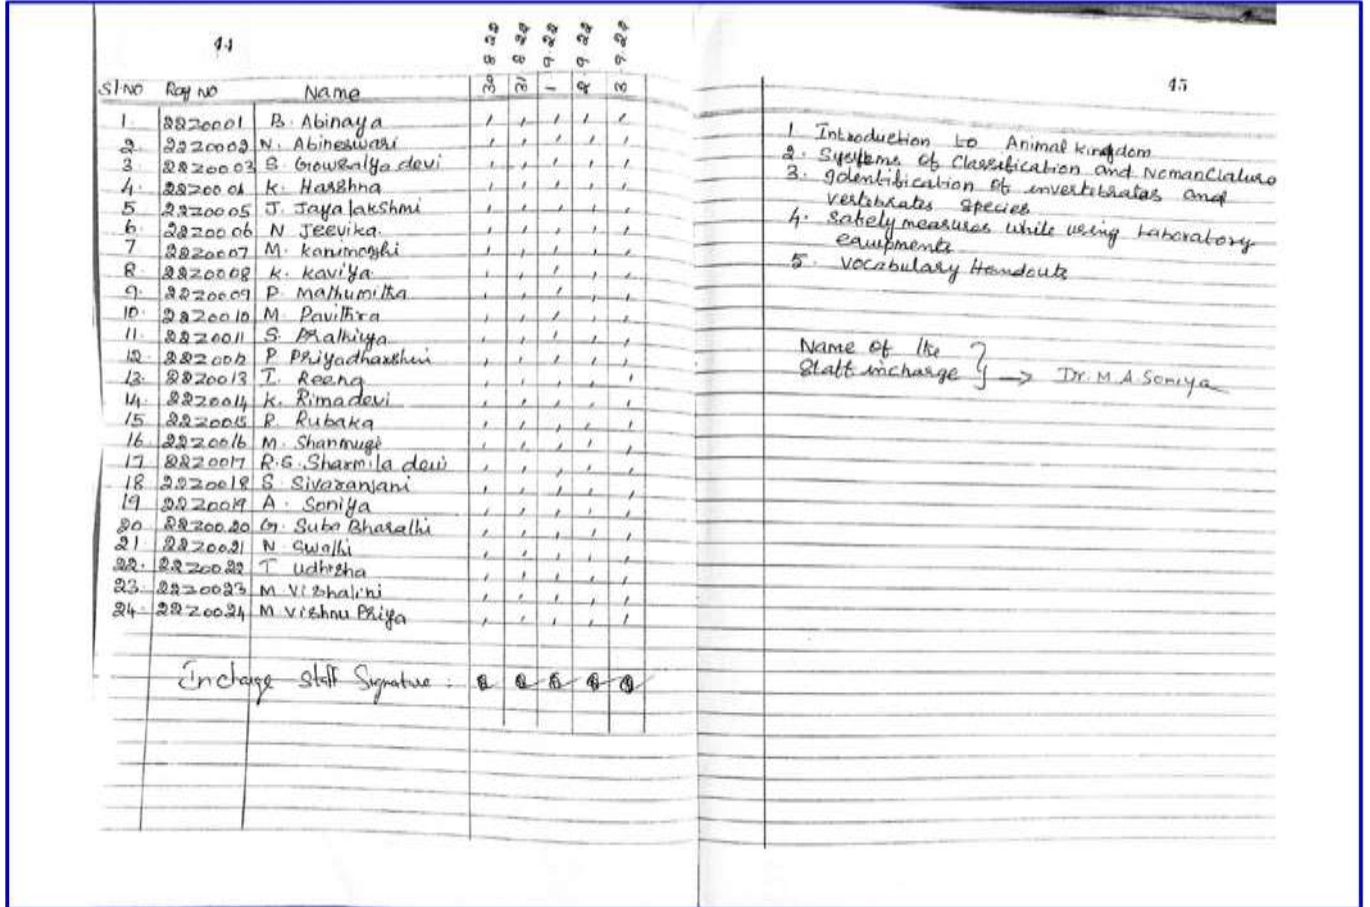 44
30 8 22 31 8 22 1 9.22 2 9 22 3 9.22
Sl.No Reg No Name
1. 22Z0001 B. Abinaya
2. 22Z0002 N. Abineswari
3 22Z0003 S. Gowsalya devi
4. 22Z0004 K. Harshna
5 22Z0005 J. Jayalakshmi
6. 22Z0006 N Jeevika.
7 22Z0007 M. Kanimozhi
8. 22Z0008 K. Kaviya
9. 22Z0009 P. Mathumitha
10. 22Z0010 M. Pavithra
11. 22Z0011 S. Prathiya
12. 22Z0012 P. Priyadharshini
13. 22Z0013 T. Reena
14. 22Z0014 K. Rimadevi
15 22Z0015 R. Rubaka
16 22Z0016 M. Shanmugi
17 22Z0017 R.G. Sharmila devi
18 22Z0018 S. Sivaranjani
19 22Z0019 A. Soniya
20 22Z0020 G. Suba Bharathi
21 22Z0021 N Swathi
22. 22Z0022 T Udhisha
23. 22Z0023 M. Vishalini
24. 22Z0024 M Vishnu Priya
Incharge Staff Signature :
45
1 Introduction to Animal kingdom
2. Systems of Classification and Nomanclature
3. Identification of invertebrates and
vertebrates species
4. Safely measures while using Laboratory
equipments
5. Vocabulary Handouts
Name of the
Staff incharge } → Dr. M.A. Soniya